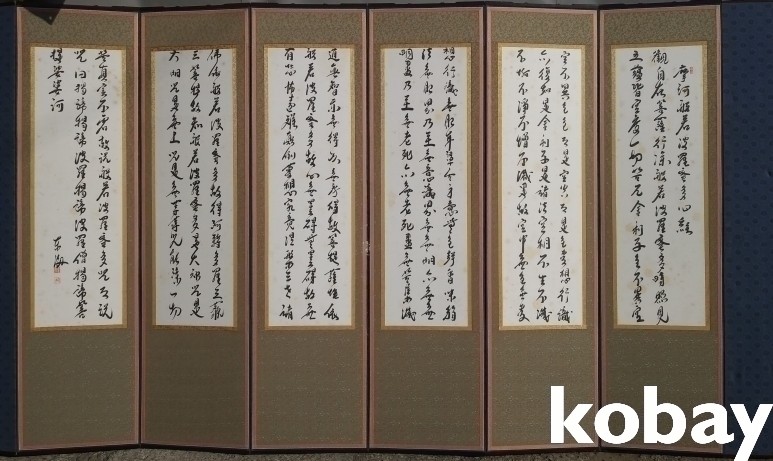 摩訶般若波羅蜜多心經
觀自在菩薩行深般若波羅蜜多時照見
五蘊皆空度一切苦厄舍利子色不異空
空不異色色即是空空即是色受想行識
亦復如是舍利子是諸法空相不生不滅
不垢不淨不增不減是故空中無色無受
想行識無眼耳鼻舌身意無色聲香味觸
法無眼界乃至無意識界無無明亦無無
明盡乃至無老死亦無老死盡無苦集滅
道無智亦無得以無所得故菩提薩埵依
般若波羅蜜多故心無罣礙無罣礙故無
有恐怖遠離顛倒夢想究竟涅槃三世諸
佛依般若波羅蜜多故得阿耨多羅三藐
三菩提故知般若波羅蜜多是大神呪是
大明呪是無上呪是無等等呪能除一切
苦真實不虛故說般若波羅蜜多呪即說
呪曰揭諦揭諦波羅揭諦波羅僧揭諦菩
提娑婆訶
kobay